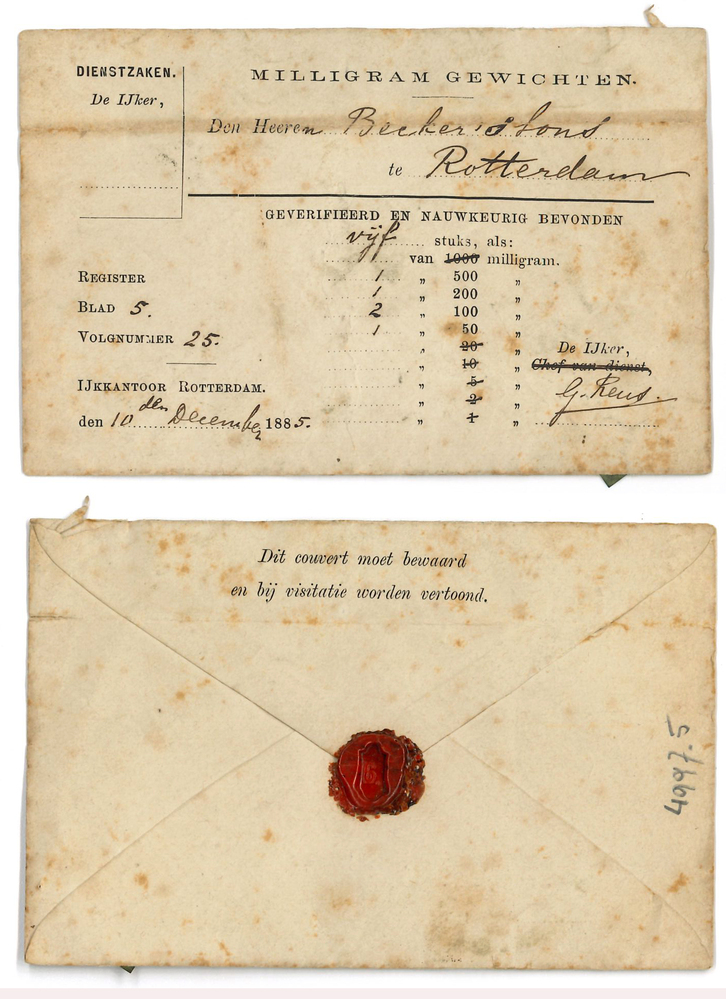 DIENSTZAKEN.
De IJker,
MILLIGRAM GEWICHTEN.
Den Heeren Becker & Sons
te Rotterdam
GEVERIFIEERD EN NAUWKEURIG BEVONDEN
vijf stuks, als:
van 1000 milligram.
1 „ 500 „
1 „ 200 „
2 „ 100 „
1 „ 50 „
„ 20 „
„ 10 „
„ 5 „
„ 2 „
„ 1 „
REGISTER
BLAD 5.
VOLGNUMMER 25.
IJKKANTOOR ROTTERDAM.
den 10 den December 1885.
De IJker,
Chef van dienst,
Dit couvert moet bewaard
en bij visitatie worden vertoond.
4997.5